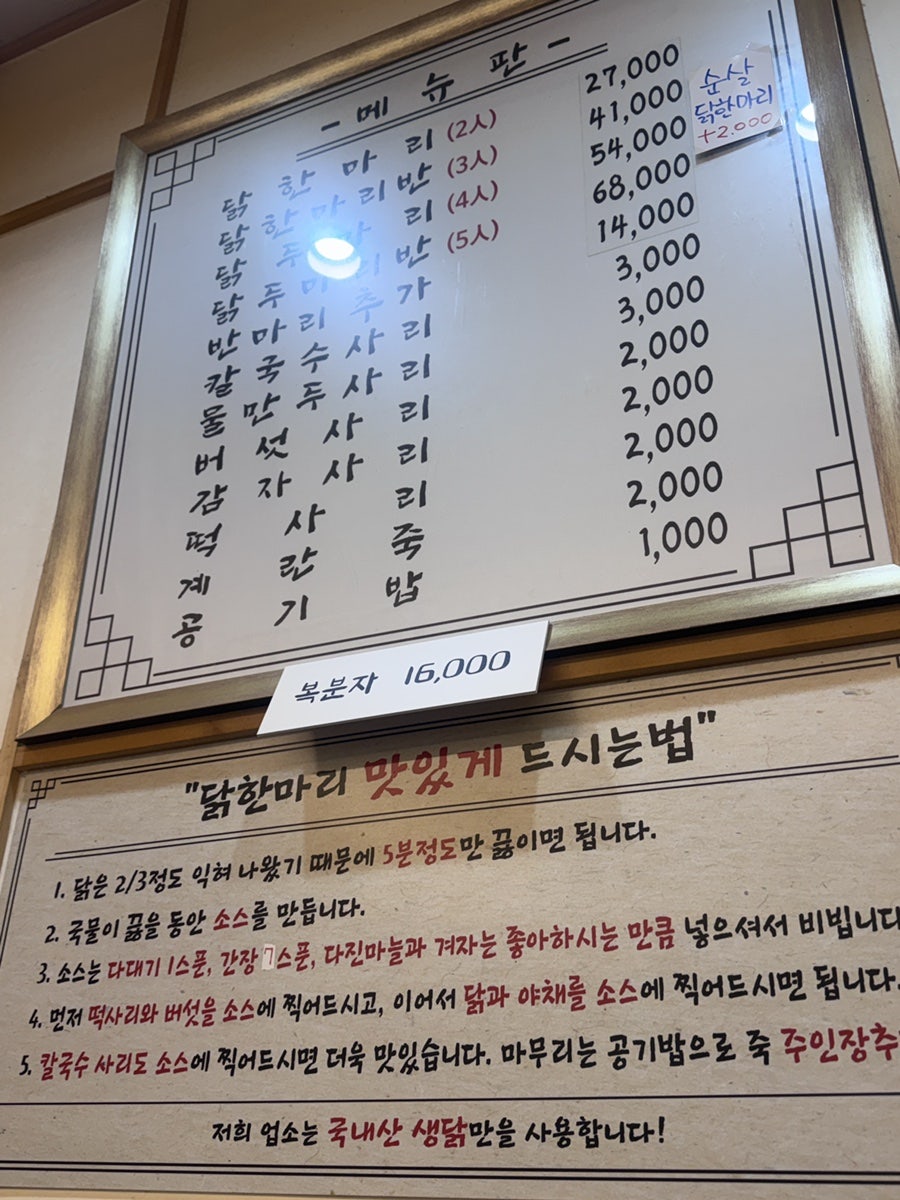 -메뉴판-
닭한마리 (2人) 27,000
닭한마리반 (3人) 41,000
닭두마리 (4人) 54,000
닭두마리반 (5人) 68,000
반마리추가 14,000
칼국수사리 3,000
물만두사리 3,000
버섯사리 2,000
감자사리 2,000
떡사리 2,000
계란죽 2,000
공기밥 1,000
순살
닭한마리
+2.000
복분자 16,000
"닭한마리 맛있게 드시는법"
1. 닭은 2/3정도 익혀 나왔기 때문에 5분정도만 끓이면 됩니다.
2. 국물이 끓을 동안 소스를 만듭니다.
3. 소스는 다대기 1스푼, 간장 7스푼, 다진마늘과 겨자는 좋아하시는 만큼 넣으셔서 비빕니다
4. 먼저 떡사리와 버섯을 소스에 찍어드시고, 이어서 닭과 야채를 소스에 찍어드시면 됩니다.
5. 칼국수 사리도 소스에 찍어드시면 더욱 맛있습니다. 마무리는 공기밥으로 죽 주인장추
저희 업소는 국내산 생닭만을 사용합니다!